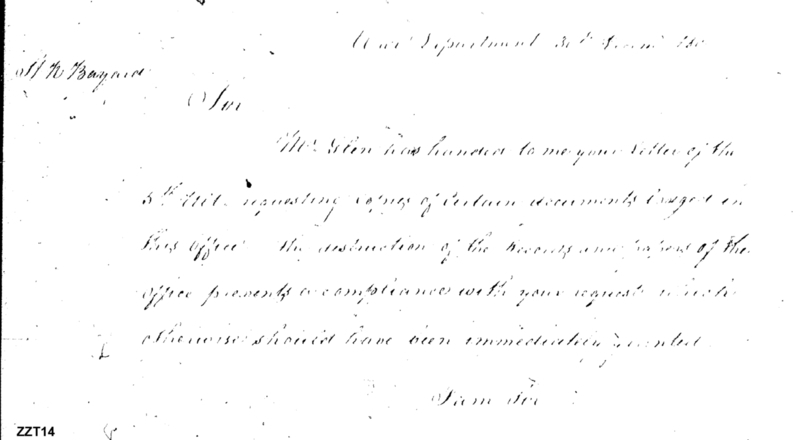 War Department 30th
N N Bayard
Sir
Mr. Glen has handed to me your Letter of the
5th Ulto. requesting copies of Certain documents lodged in
this Office The destruction of the Records and papers of the
Office prevents a compliance with your request which
otherwise should have been immediately granted
I am Sir
ZZT14